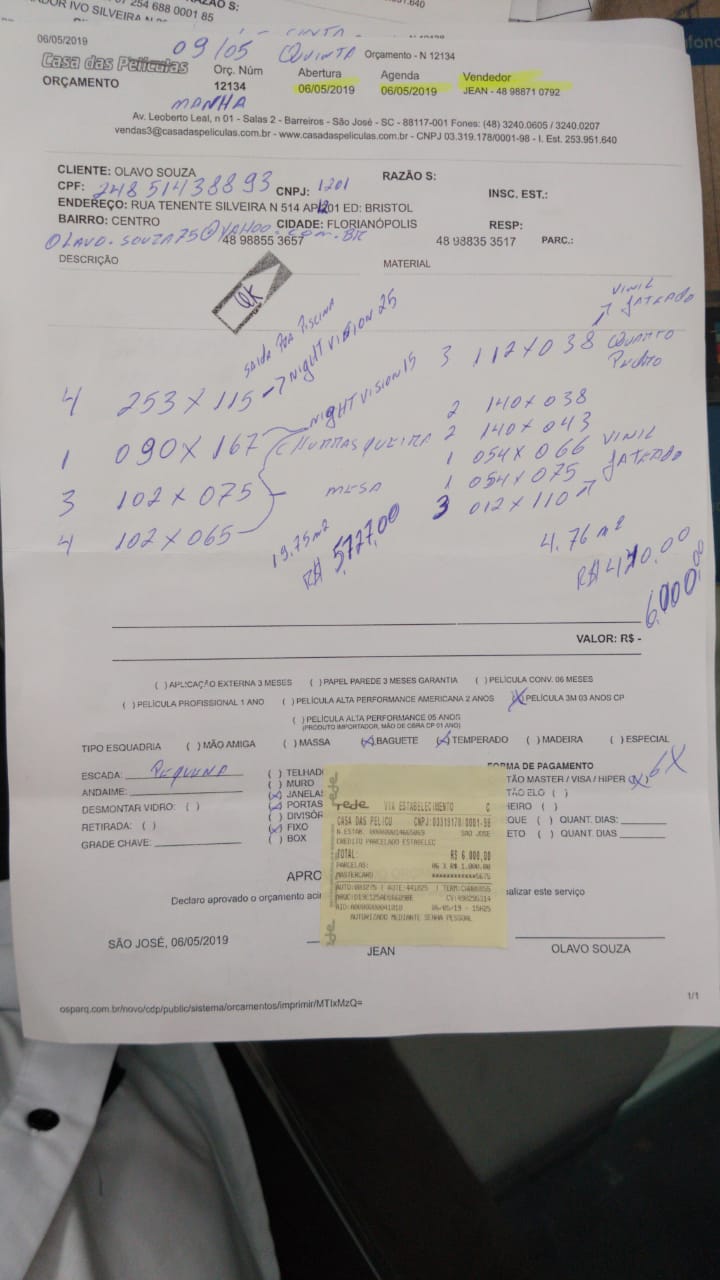 06/05/2019
09/05 QUINTA
Orçamento - N 12134
Casa das Películas
ORÇAMENTO
Orç. Núm
12134
Abertura
06/05/2019
Agenda
06/05/2019
Vendedor
JEAN - 48 98871 0792
MANHA
Av. Leoberto Leal, n 01 - Salas 2 - Barreiros - São José - SC - 88117-001 Fones: (48) 3240.0605 / 3240.0207
vendas3@casadaspeliculas.com.br - www.casadaspeliculas.com.br - CNPJ 03.319.178/0001-98 - I. Est. 253.951.640
CLIENTE: OLAVO SOUZA
RAZÃO S:
CPF: 248 514388893 CNPJ: 1201
INSC. EST.:
ENDEREÇO: RUA TENENTE SILVEIRA N 514 AP1201 ED: BRISTOL
BAIRRO: CENTRO
CIDADE: FLORIANÓPOLIS
RESP:
OLAVO.SOUZA75@YAHOO.COM.BR
48 98855 3657
48 98835 3517
PARC.:
DESCRIÇÃO
MATERIAL
OK
SAIDA PRA PISCINA
4 253 X 115 → NIGHT VISION 25
3 112 X 038
VINIL
JATEADO
QUARTO
1 090 X 167
NIGHT VISION 15
CHURRASQUEIRA
2 140 X 038
2 140 X 043
3 102 X 075
MESA
1 054 X 066
VINIL
1 054 X 075
JATEADO
4 102 X 065
3 012 X 110
19.75 m²
R$ 5727,00
4.76 m²
R$ 470.00
6.000,00
VALOR: R$ -
( ) APLICAÇÃO EXTERNA 3 MESES ( ) PAPEL PAREDE 3 MESES GARANTIA ( ) PELÍCULA CONV. 06 MESES
( ) PELÍCULA PROFISSIONAL 1 ANO ( ) PELÍCULA ALTA PERFORMANCE AMERICANA 2 ANOS (X) PELÍCULA 3M 03 ANOS CP
( ) PELÍCULA ALTA PERFORMANCE 05 ANOS
(PRODUTO IMPORTADOR, MÃO DE OBRA CP 01 ANO)
TIPO ESQUADRIA ( ) MÃO AMIGA ( ) MASSA (X) BAGUETE (X) TEMPERADO ( ) MADEIRA ( ) ESPECIAL
ESCADA: PEQUENA
ANDAIME:
DESMONTAR VIDRO: ( )
RETIRADA: ( )
GRADE CHAVE:
( ) TELHAD
( ) MURO
(X) JANELA
(X) PORTAS
( ) DIVISÓR
(X) FIXO
( ) BOX
FORMA DE PAGAMENTO
TÃO MASTER / VISA / HIPER (X) 6X
TÃO ELO ( )
HEIRO ( )
QUE ( ) QUANT. DIAS:
ETO ( ) QUANT. DIAS
rede VIA ESTABELECIMENTO C
CASA DAS PELICU CNPJ:03319178/0001-98
SAO JOSE
CREDITO PARCELADO ESTABELEC
TOTAL: R$ 6.000,00
PARCELAS: 06 X R$ 1.000,00
MASTERCARD ************5675
06/05/19 - 15H25
AUTORIZADO MEDIANTE SENHA PESSOAL
rede
APRO
Declaro aprovado o orçamento aci
alizar este serviço
SÃO JOSÉ, 06/05/2019
JEAN
OLAVO SOUZA
1/1
osparq.com.br/novo/cdp/public/sistema/orcamentos/imprimir/MTIxMzQ=